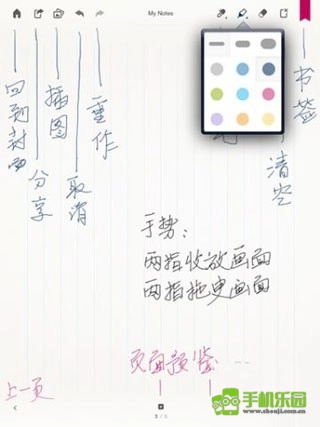 My Notes
回到封面
分享
插图
取消
重作
书签
清空
手势：
两指收放画面
两指拖曳画面
页面预览
上一页
手机乐园
www.shouji.com.cn